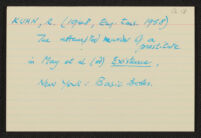 KUHN, R. (1948, Eng. trans. 1958)
The attempted murder of a
prostitute
in May et al (ed) Existence,
New York: Basic Books.